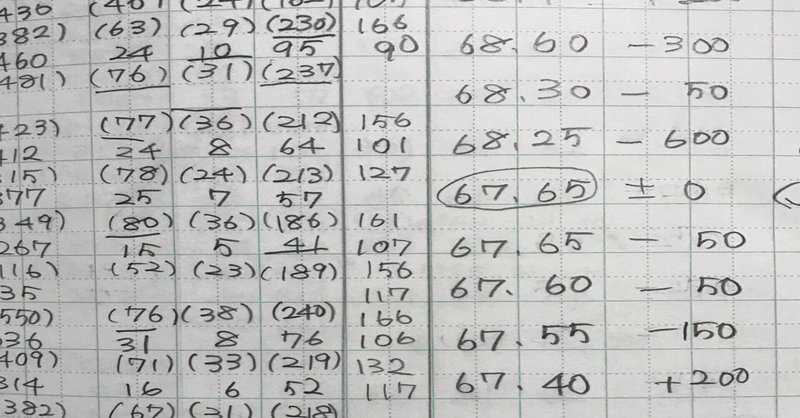 382) (63) (29) (230) 166
460 24 10 95 90 68.60 - 300
481) (76) (31) (237)
68.30 - 50
423) (77) (36) (212) 156
412 24 8 64 101 68.25 - 600
15) (78) (24) (213) 127
377 25 7 57 67.65 ± 0
349) (80) (36) (186) 161
267 15 5 41 107 67.65 - 50
116) (52) (23) (189) 156
35 117 67.60 - 50
550) (76) (38) (240) 166
536 31 8 76 106 67.55 - 150
409) (71) (33) (219) 132
314 16 6 52 117 67.40 + 200
382) (67) (31) (218)